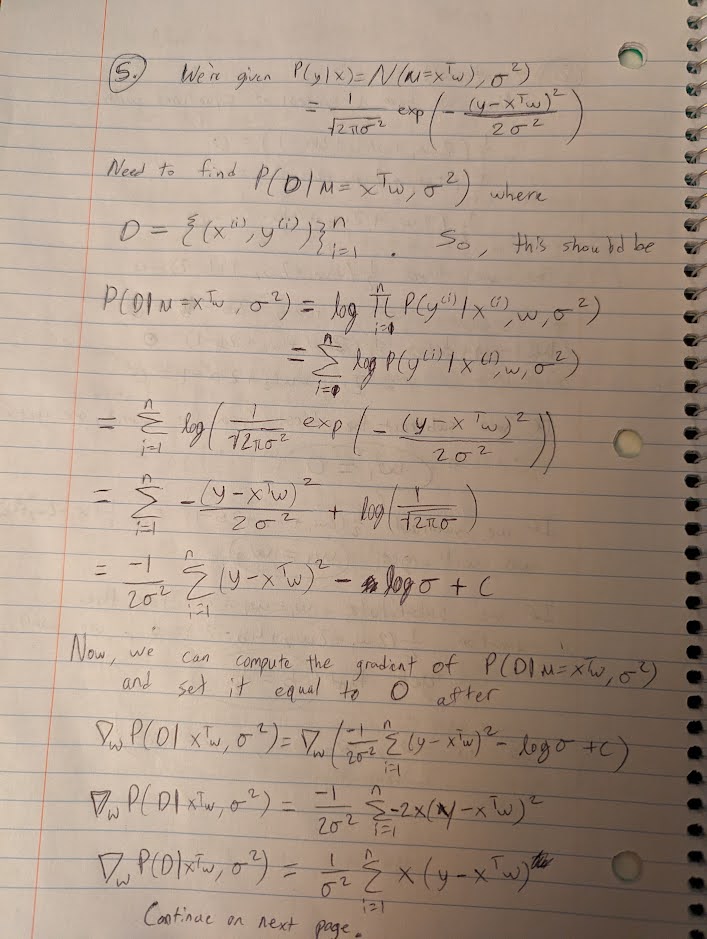 5. We're given P(y|x) = N(μ=xᵀw), σ²)
= 1/√(2πσ²) exp(-(y-xᵀw)²/2σ²)
Need to find P(D|μ=xᵀw, σ²) where
D = {(x⁽ⁱ⁾, y⁽ⁱ⁾)}ⁿᵢ₌₁ . So, this should be
P(D|μ=xᵀw, σ²) = log ∏ⁿᵢ₌₁ P(y⁽ⁱ⁾|x⁽ⁱ⁾, w, σ²)
= Σⁿᵢ₌₁ log P(y⁽ⁱ⁾|x⁽ⁱ⁾, w, σ²)
= Σⁿᵢ₌₁ log(1/√(2πσ²) exp(-(y-xᵀw)²/2σ²))
= Σⁿᵢ₌₁ -(y-xᵀw)²/2σ² + log(1/√(2πσ))
= -1/2σ² Σⁿᵢ₌₁ (y-xᵀw)² - log σ + C
Now, we can compute the gradient of P(D|μ=xᵀw, σ²)
and set it equal to 0 after
∇w P(D|xᵀw, σ²) = ∇w(-1/2σ² Σⁿᵢ₌₁ (y-xᵀw)² - log σ + C)
∇w P(D|xᵀw, σ²) = -1/2σ² Σⁿᵢ₌₁ -2x(y-xᵀw)²
∇w P(D|xᵀw, σ²) = 1/σ² Σⁿᵢ₌₁ x(y-xᵀw)
Continue on next page.